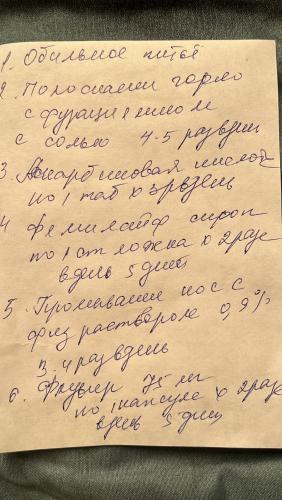 1. Обильное питьё
2. Полоскания горло
с фурацилином
с солью 4-5 раз в день
3. Аскарбиновая кислота
по 1 таб х 3 р в день
4 Фемилайф сироп
по 1 ст ложка х 2 раза
в день 5 дней
5 Промывание нос с
физ раствором 0,9%
3-4 раз в день
6. 75 мг
по 1 капсуле х 2 раза
в день 5 дней